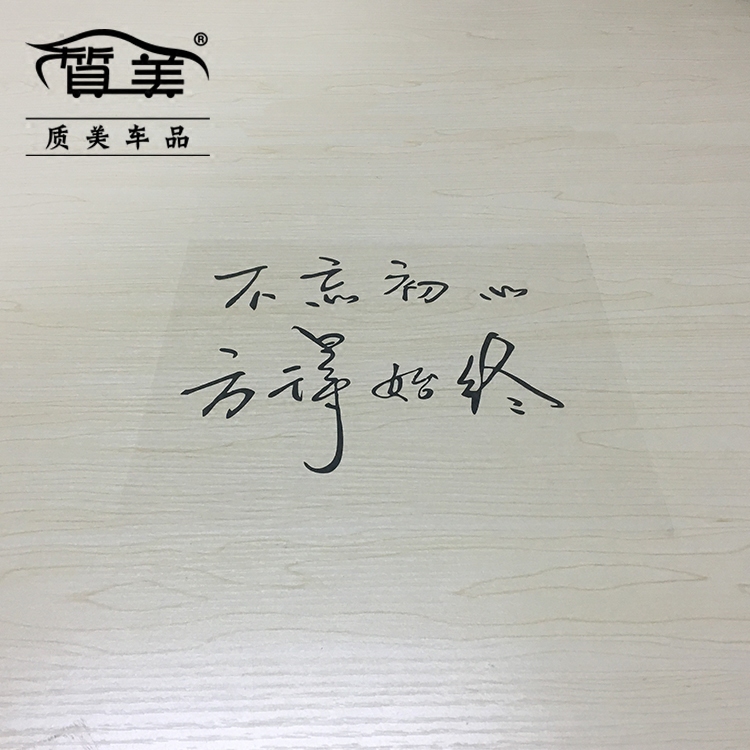 質美®
质美车品
不忘初心
方得始终